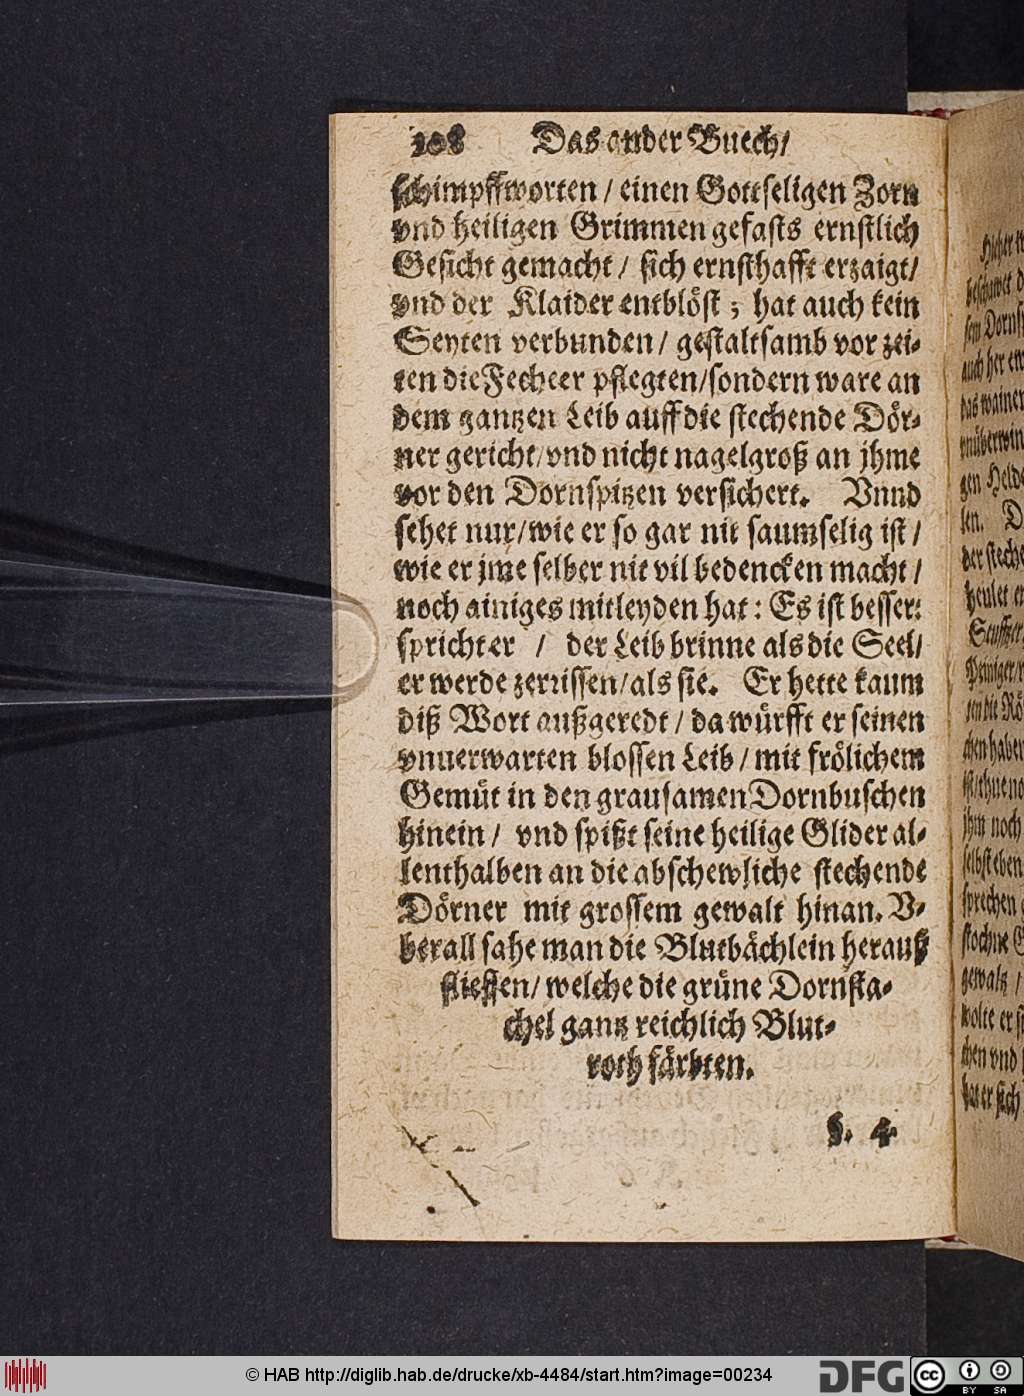 208 Das ander Buech/
schimpffworten / einen Gottseligen Zorn
vnd heiligen Grimmen gefasts ernstlich
Gesicht gemacht / sich ernsthafft erzaigt/
vnd der Klaider entblöst; hat auch kein
Seyten verbunden / gestaltsamb vor zei-
ten die Fechter pflegten/sondern ware an
dem gantzen Leib auff die stechende Dör-
ner gericht/vnd nicht nagelgroß an jhme
vor den Dornspitzen versichert. Vnnd
sehet nur/wie er so gar nit saumselig ist /
wie er jme selber nit vil bedencken macht /
noch ainiges mitleyden hat: Es ist besser:
spricht er / der Leib brinne als die Seel/
er werde zerrissen/als sie. Er hette kaum
diß Wort außgeredt / da würfft er seinen
vnuerwarten blossen Leib / mit frölichem
Gemüt in den grausamen Dornbuschen
hinein / vnd spißt seine heilige Glider al-
lenthalben an die abschewliche stechende
Dörner mit grossem gewalt hinan. V-
berall sahe man die Blutbächlein herauß
fliessen/ welche die grüne Dornsta-
chel gantz reichlich Blut-
roth färbten.
§. 4.
beschawet
auch her
das wainen
gen Helde
len. D
der steche
heulet er
Seufftzer
chen haben
jhm noch
selbst eben
sprechen
gewaltz /
wolte er
chen vnd
hat er sich
© HAB http://diglib.hab.de/drucke/xb-4484/start.htm?image=00234
DFG
cc
BY SA